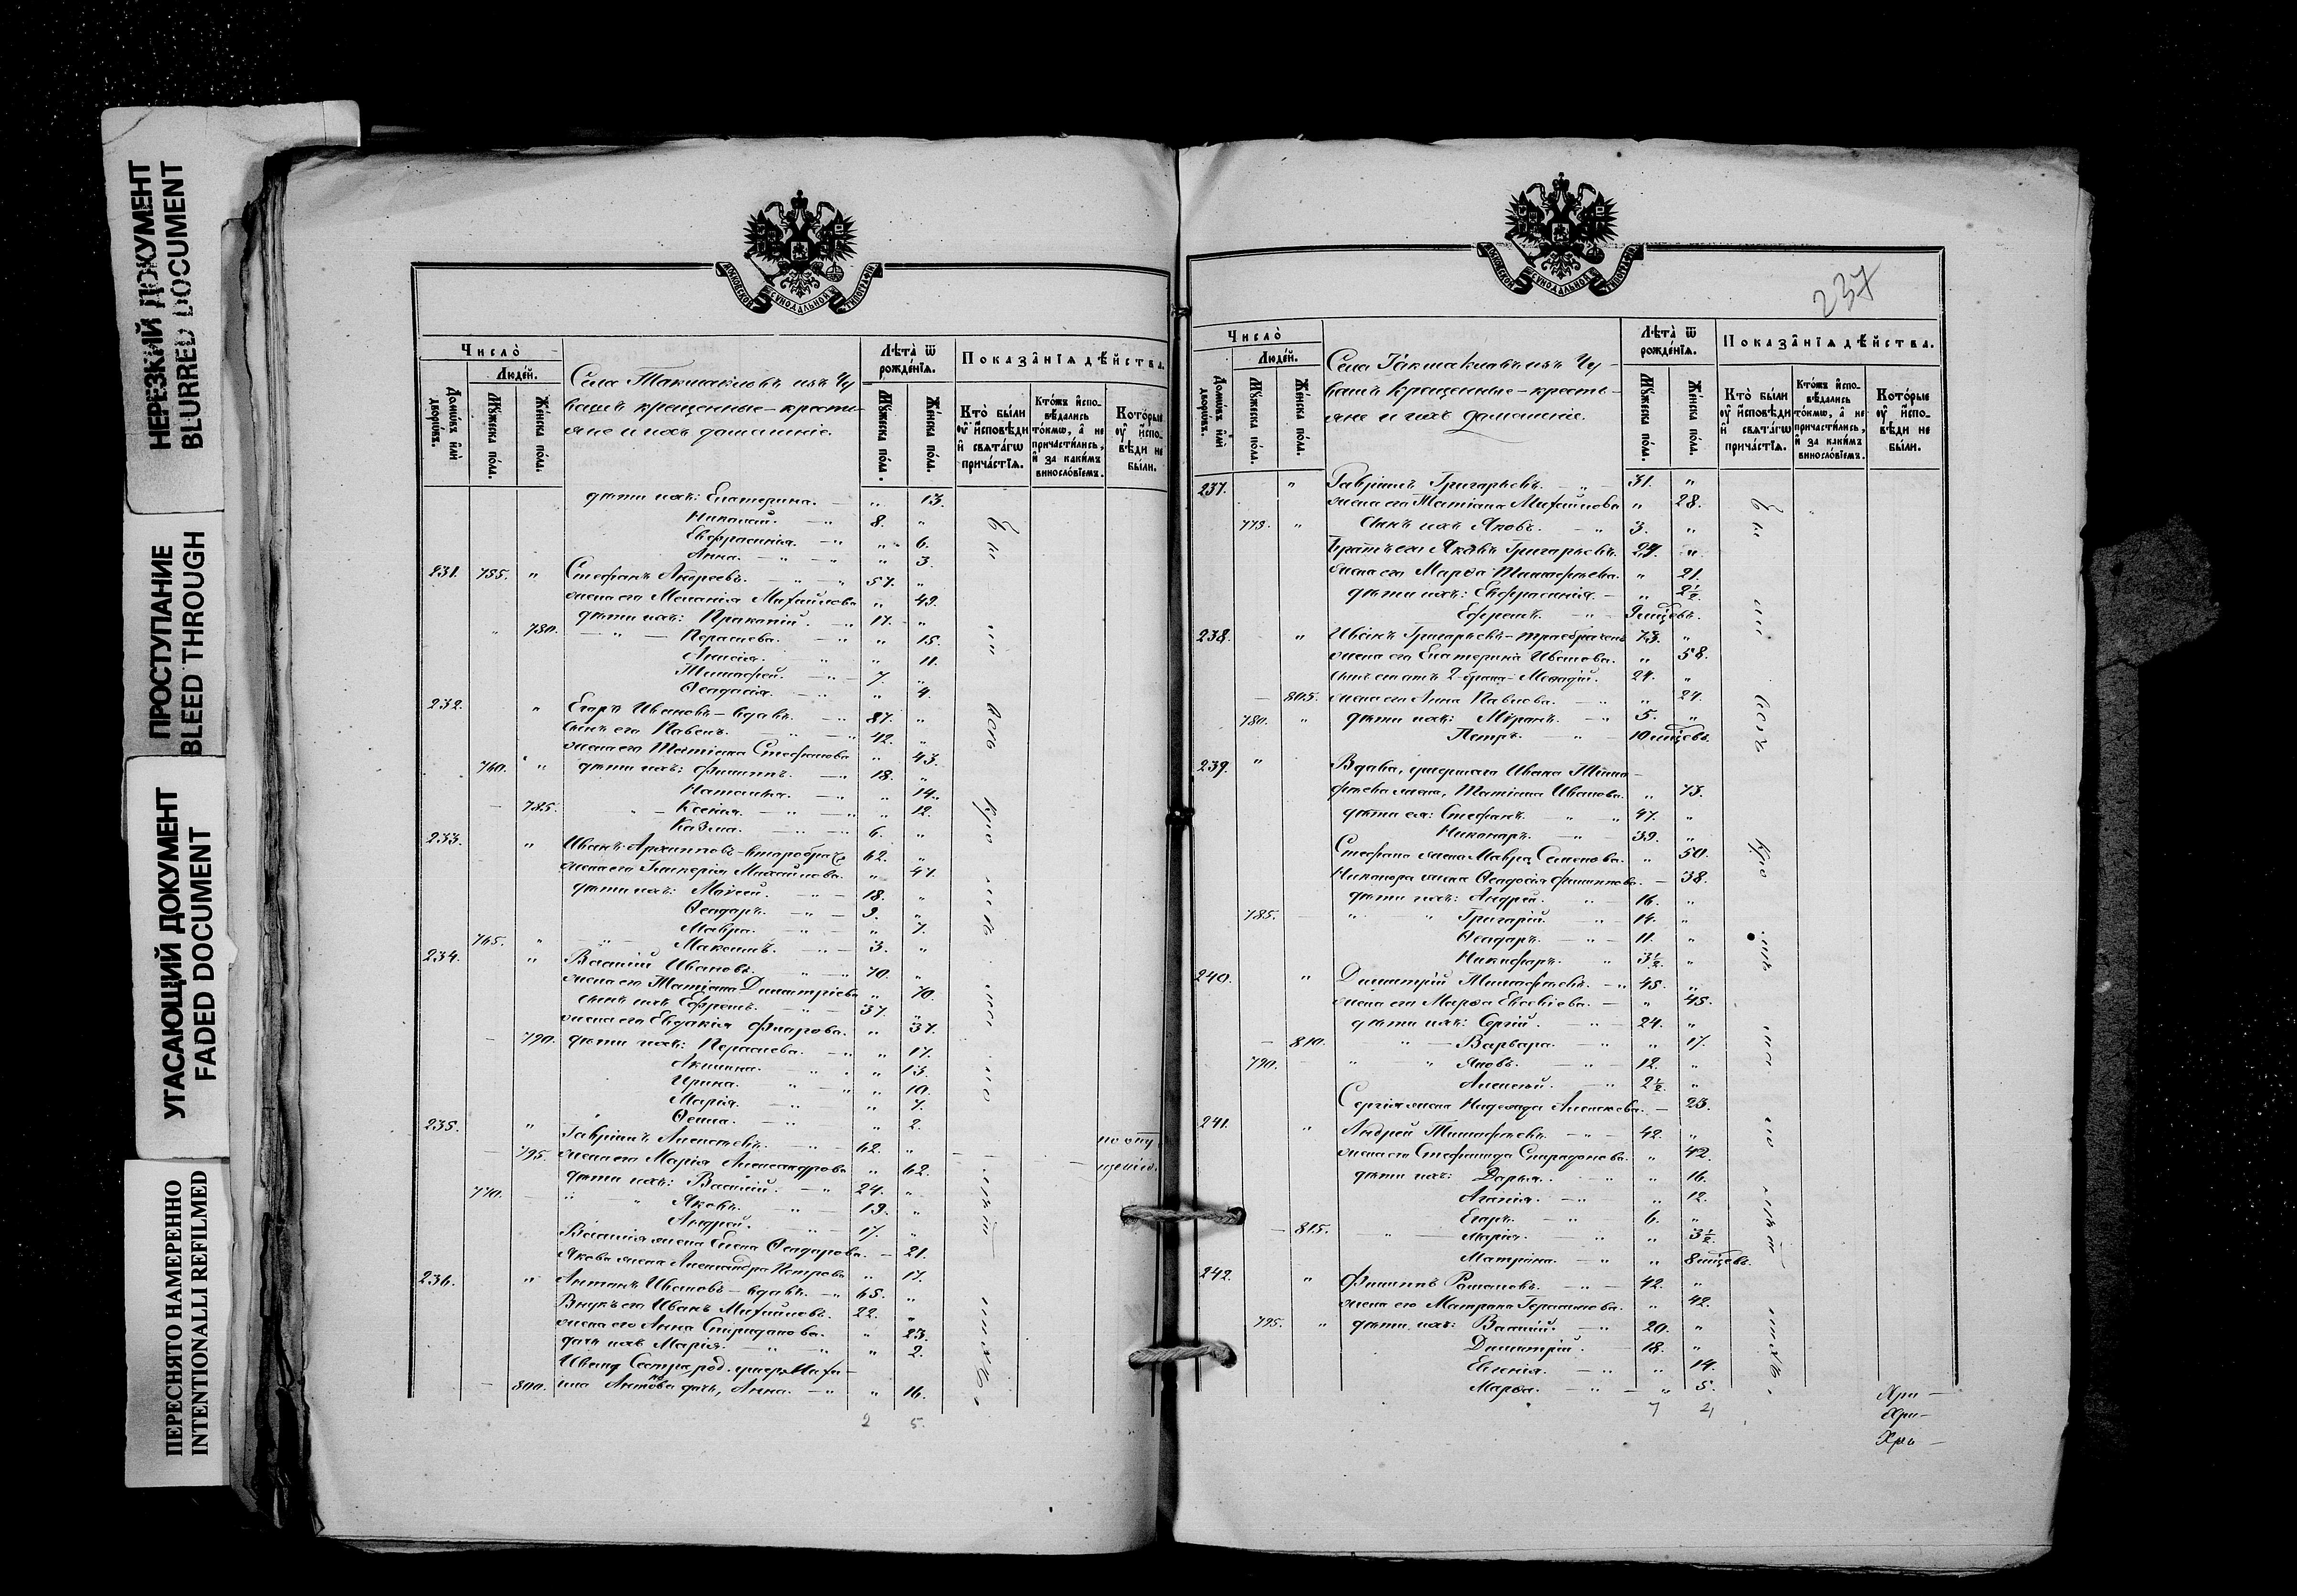 НЕРЕЗКИЙ ДОКУМЕНТ
BLURRED DOCUMENT
ПРОСТУПАНИЕ
BLEED THROUGH
УГАСАЮЩИЙ ДОКУМЕНТ
FADED DOCUMENT
ПЕРЕСНЯТО НАМЕРЕННО
INTENTIONALLI REFILMED
МОСКОВСКОЙ СѴНОДАЛЬНОЙ ТИПОГРАФІИ
Число̀
Люде́й.
Домѡ́въ и҆лѝ дворѡ́въ.
Мꙋ́жеска по́ла.
Же́нска по́ла.
Села Такмаковъ изъ Чу
вашъ крещенные – крестья
яне и ихъ домашніе.
Лѣ́та ѿ рожде́нїѧ.
Мꙋ́жеска по́ла.
Же́нска по́ла.
Показа́нїѧ дѣ́йства.
Кто̀ бы́ли оу҆ и҆сповѣ́ди и҆ свѧта́гѡ прича́стїѧ.
Кто́жъ и҆спо­вѣ́дались то́кмѡ, а҆ не причасти́лись, и҆ за каки́мъ винослѡ́вїемъ.
Кото́рые оу҆ и҆спо­вѣ́ди не бы́ли.
дѣти ихъ: Екатерина. " 13.
Николай. 8. "
Евфросинія. " 6.
Анна. " 3.
231. 755. " Стефанъ Андреевъ. 57. "
жена его Меланія Михайлова " 49.
дѣти ихъ: Прокопій. 17. "
" 780. Парасева. " 15.
Анисія. " 11.
Тимофей. 7. "
Ѳеодосія. " 4.
232. " Егоръ Ивановъ – вдовъ. 87. "
сынъ его Павелъ. 42. "
жена его Татіана Стефанова " 43.
760. " дѣти ихъ: Филиппъ. 18. "
Наталья. " 14.
785. Ксенія. " 12.
Козма. 6. "
233. " Иванъ Архиповъ 62. "
жена его Гликерія Михайлова. " 47.
дѣти ихъ: Моисей. 18. "
Ѳеодоръ. 9. "
Мавра. " 7.
765. " Максимъ. 3. "
234. " Василій Ивановъ. 70. "
жена его Татіана Димитріева " 70.
сынъ ихъ Ефремъ. 37. "
жена его Евдокія Фларова. " 37.
790. дѣти ихъ: Парасева. " 17.
Акилина. " 13.
Ирина. " 10.
Марія. " 7.
Ѳекла. " 2.
235. " Гавріилъ Алексѣевъ. 62. "
795. жена его Марія Александрова " 62.
дѣти ихъ: Василій. 24. "
770. Яковъ. 19. "
Андрей. 17. "
Василія жена Елена Ѳеодорова. 21.
Якова жена Александра Петрова " 17.
236. " Антонъ Ивановъ – вдовъ. 65. "
Внукъ его Иванъ Михайловъ. 22. "
жена его Анна Спиридонова. " 23.
дочь ихъ Марія. " 2.
Ивану Сестра род. умер. Миха
800. ила Антонова дочь, Анна. " 16.
2 5.
по опу
щенію.
237
МОСКОВСКОЙ СѴНОДАЛЬНОЙ ТИПОГРАФІИ
Число̀
Люде́й.
Домѡ́въ и҆лѝ дворѡ́въ.
Мꙋ́жеска по́ла.
Же́нска по́ла.
Села Такмаковъ изъ Чу-
вашъ крещенные – кресть-
яне и ихъ домашніе.
Лѣ́та ѿ рожде́нїѧ.
Мꙋ́жеска по́ла.
Же́нска по́ла.
Показа́нїѧ дѣ́йства.
Кто̀ бы́ли оу҆ и҆сповѣ́ди и҆ свѧта́гѡ прича́стїѧ.
Кто́жъ и҆спо­вѣ́дались то́кмѡ, а҆ не причасти́лись, и҆ за каки́мъ винослѡ́вїемъ.
Кото́рые оу҆ и҆спо­вѣ́ди не бы́ли.
237. " Гавріилъ Григорьевъ. 31. "
жена его Татіана Михайлова " 28.
779. " сынъ ихъ Яковъ. 3. "
Братъ его Яковъ Григорьевъ. 27. "
жена его Марѳа Тимофѣева. " 21.
дѣти ихъ: Евфросинія. " 2½.
Ефремъ. 9 мцсевъ.
238. " Иванъ Григорьевъ 73. "
жена его Екатерина Иванова. " 58.
сынъ его отъ 2-брака – Меѳодій. 24. "
805. жена его Анна Павлова. " 24.
780. " дѣти ихъ: Миронъ. 5. "
Петръ. 10 мцсевъ.
239. " Вдова, умершаго Ивана Тимо-
фѣева жена, Татіана Иванова. " 73.
дѣти ея: Стефанъ. 47. "
Никаноръ. 39. "
Стефана жена Мавра Семенова. " 50.
Никанора жена Ѳеодосія Филиппова. 38.
дѣти ихъ: Андрей. 16. "
785. Григорій. 14. "
Ѳеодоръ. 11. "
Никифоръ. 3½. "
240. " Димитрій Тимофѣевъ. 45. "
жена его Марѳа Евсевіева. " 45.
дѣти ихъ: Сергій. 24. "
810. Варвара. " 17.
790. Яковъ. 12. "
Алексѣй. 2½. "
Сергія жена Надежда Алексѣева. 23.
241. " Андрей Тимофѣевъ. 42. "
жена его Стефанида Спиридонова. " 42.
дѣти ихъ: Дарья. " 16.
Агапія. " 12.
Егоръ. 6. "
815. Марія. " 3½.
Матрона. " 8 мцсевъ.
242. " Филиппъ Романовъ. 42. "
жена его Матрона Герасимова. " 42.
795. " дѣти ихъ: Василій. 20. "
Димитрій. 18. "
Евгенія. " 14.
Марѳа. " 5.
7 21
Хри –
Хри –
Хри –